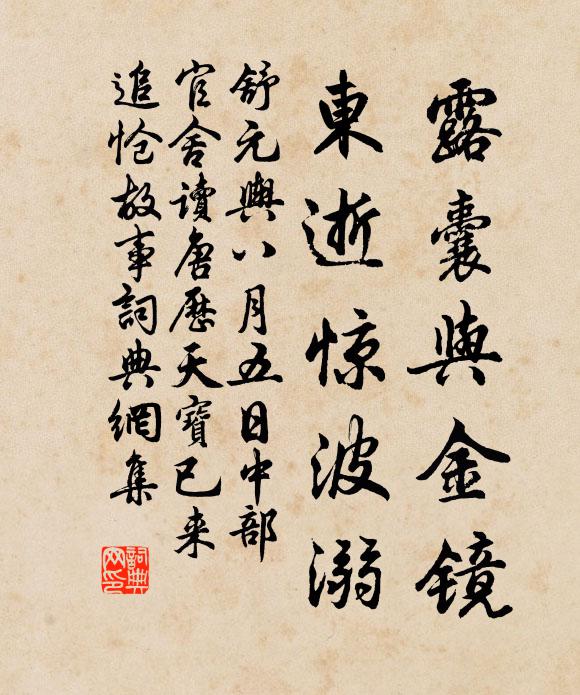 露囊與金鏡
東逝惊波溺
舒元輿八月五日中部
官舍讀唐歷天寶已来
追愴故事詞典網集
詞典网印